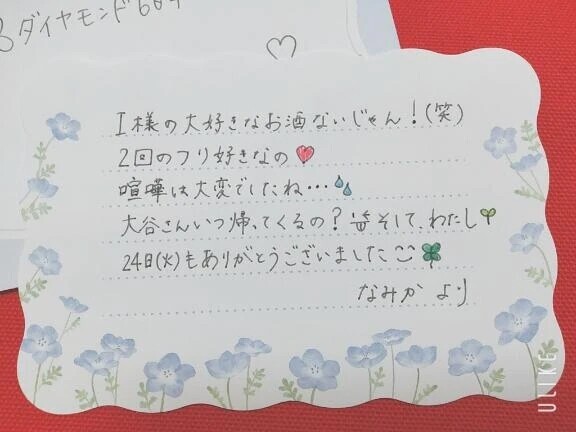 ダイヤモンド
I様の大好きなお酒ないじゃん！(笑)
2回のフリ好きなの♥
喧嘩は大変でしたね…💦
大谷さんいつ帰ってくるの？そして、わたし🌱
24日(火)もありがとうございました🍀
なみか より
ULIKE